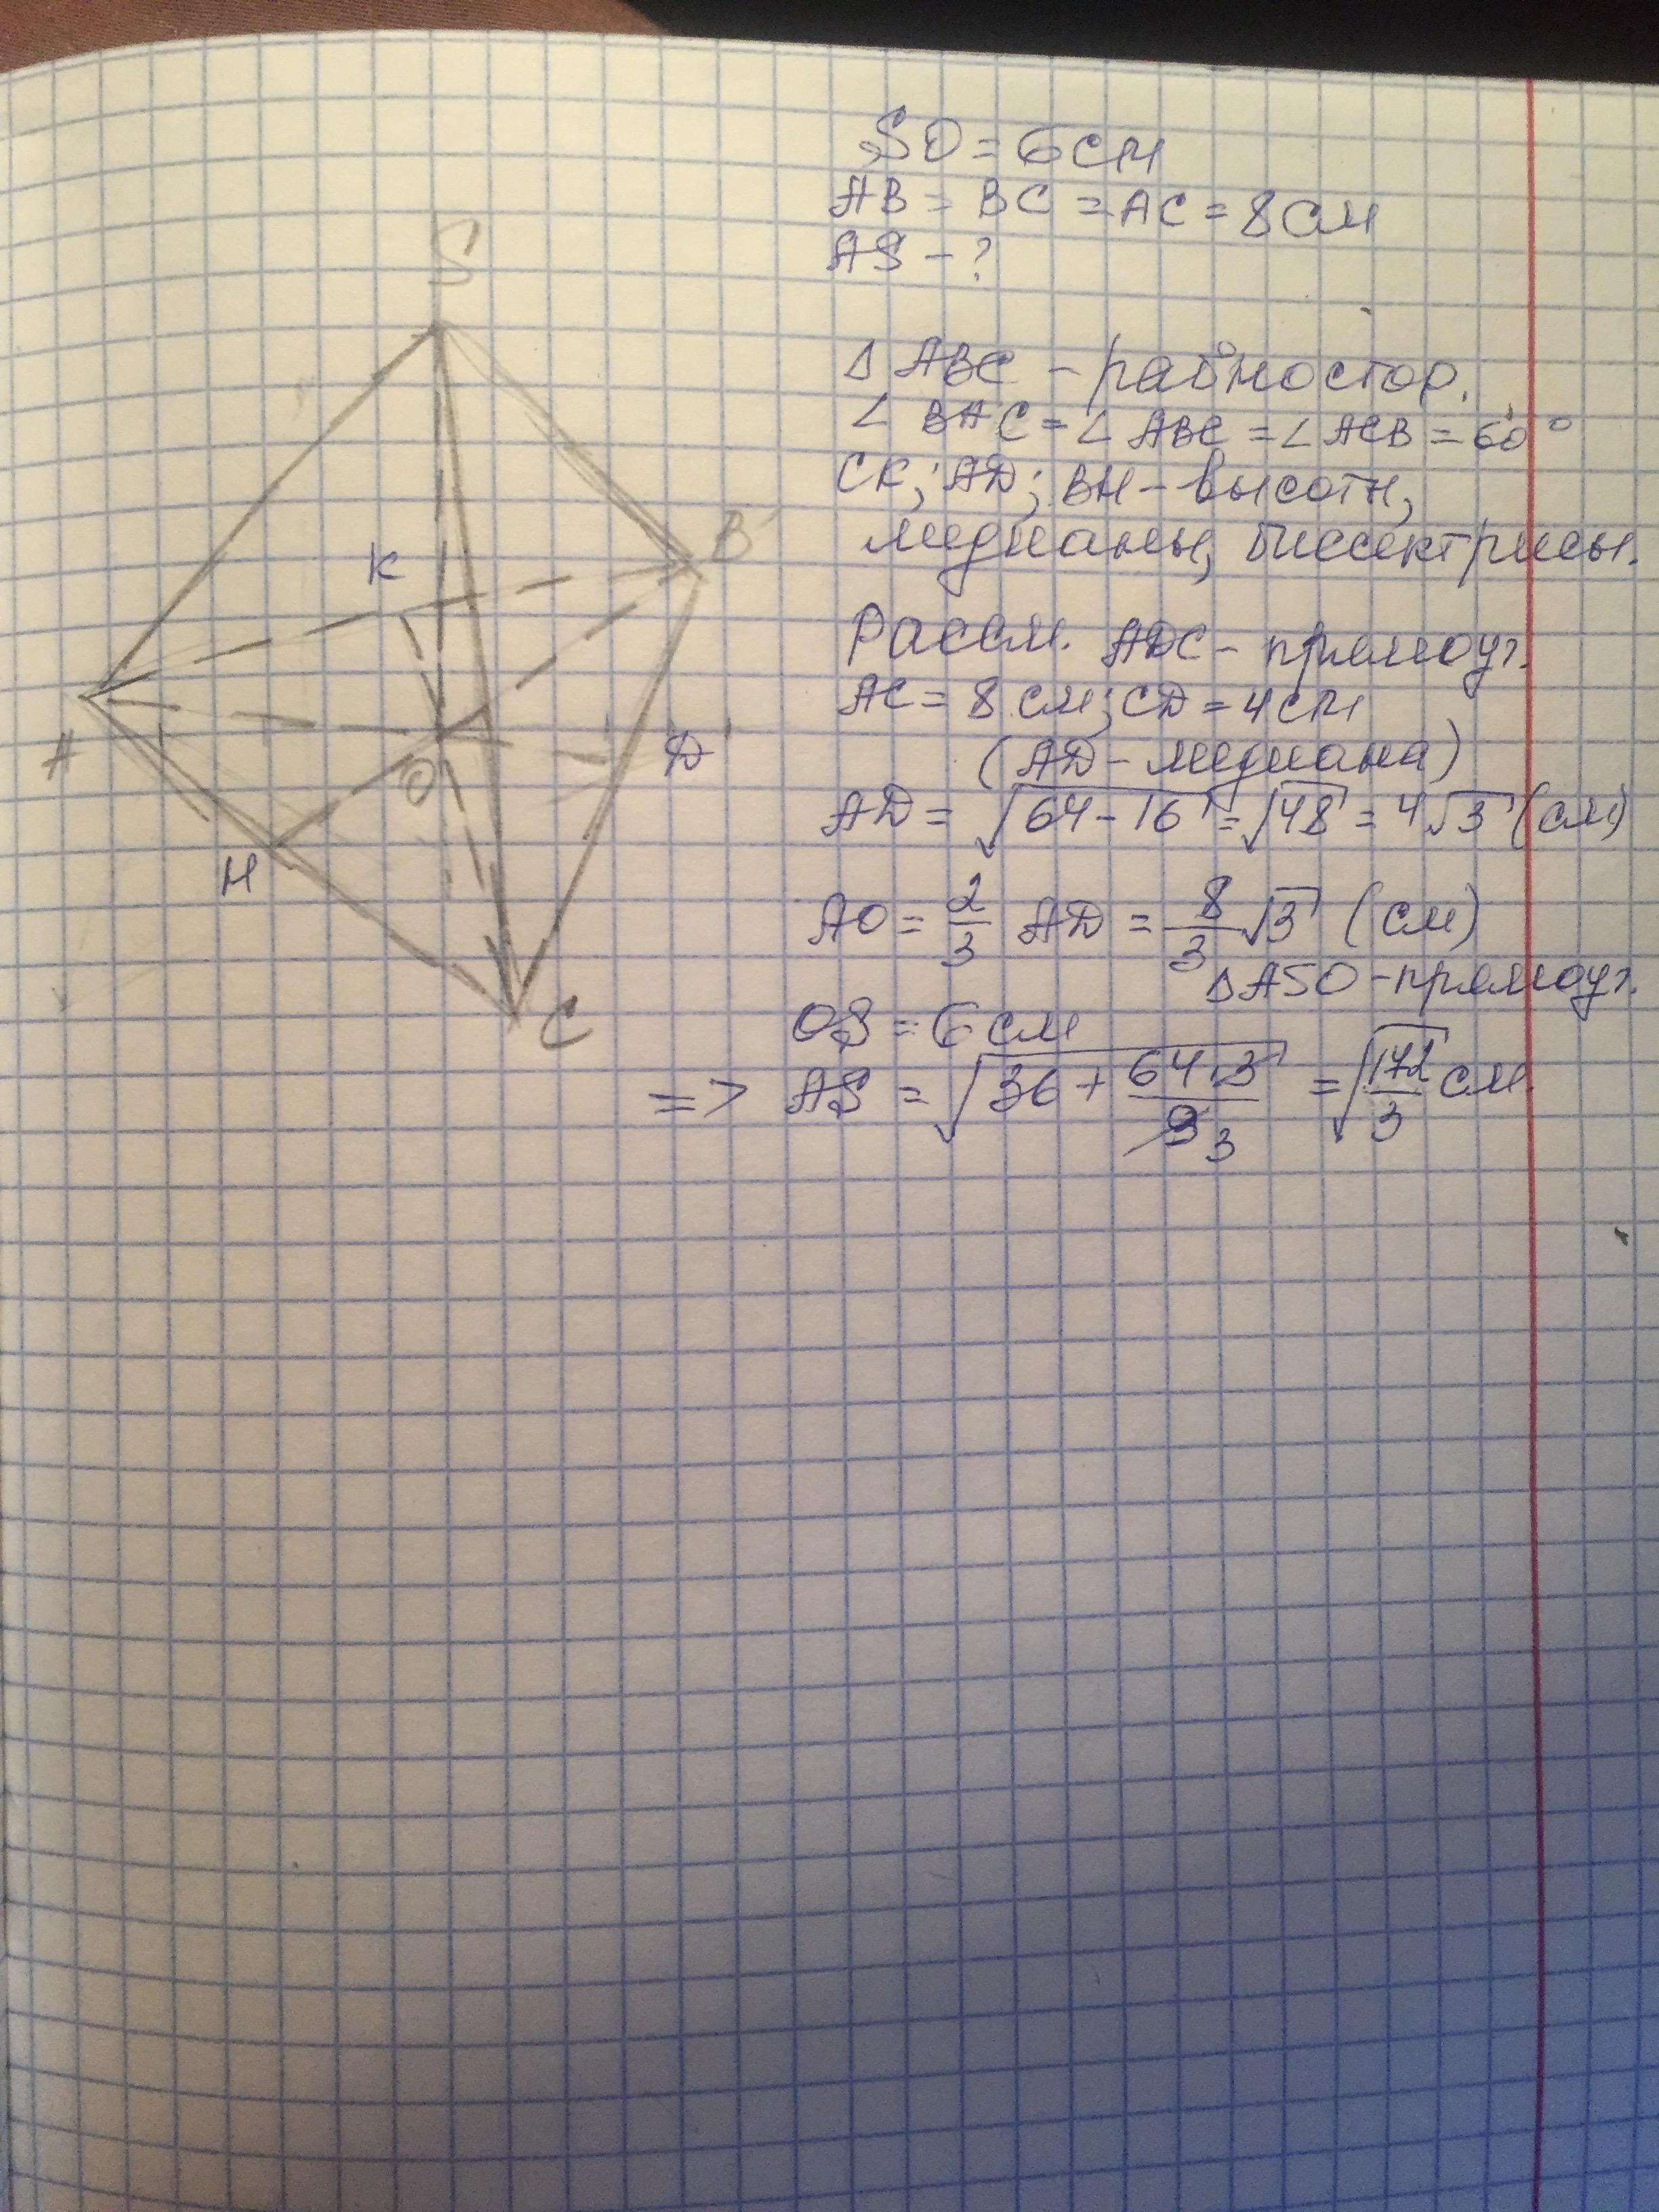 S
K
B
A
O
D
H
C
SO = 6 см
AB = BC = AC = 8 см
AS - ?
Δ ABC - равностор.
∠ BAC = ∠ ABC = ∠ ACB = 60°
CK; AD; BH - высоты,
медианы, биссектрисы.
Рассм. ADC - прямоуг.
AC = 8 см; CD = 4 см
(AD - медиана)
AD = √64 - 16 = √48 = 4√3 (см)
AO = 2/3 AD = 8/3 √3 (см)
Δ ASO - прямоуг.
OS = 6 см
=> AS = √36 + 64·3/9 3 = √172/3 см.